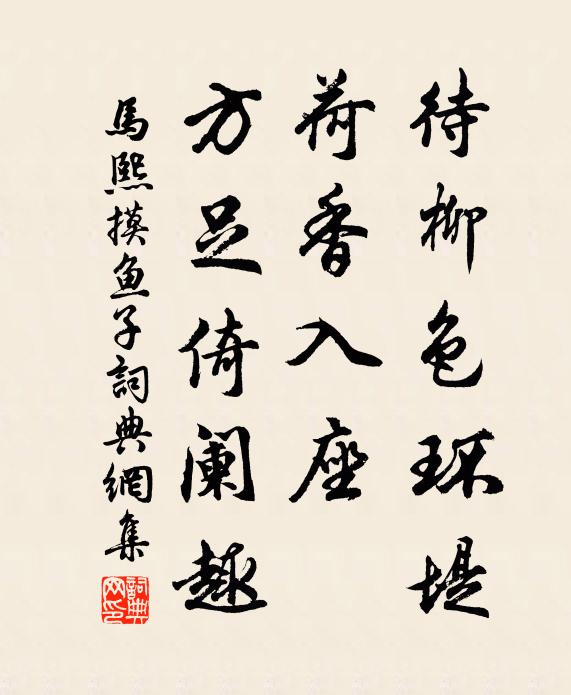 待柳色环堤
荷香入座
方足倚阑趣
馬熙摸鱼子詞典網集
詞典網印